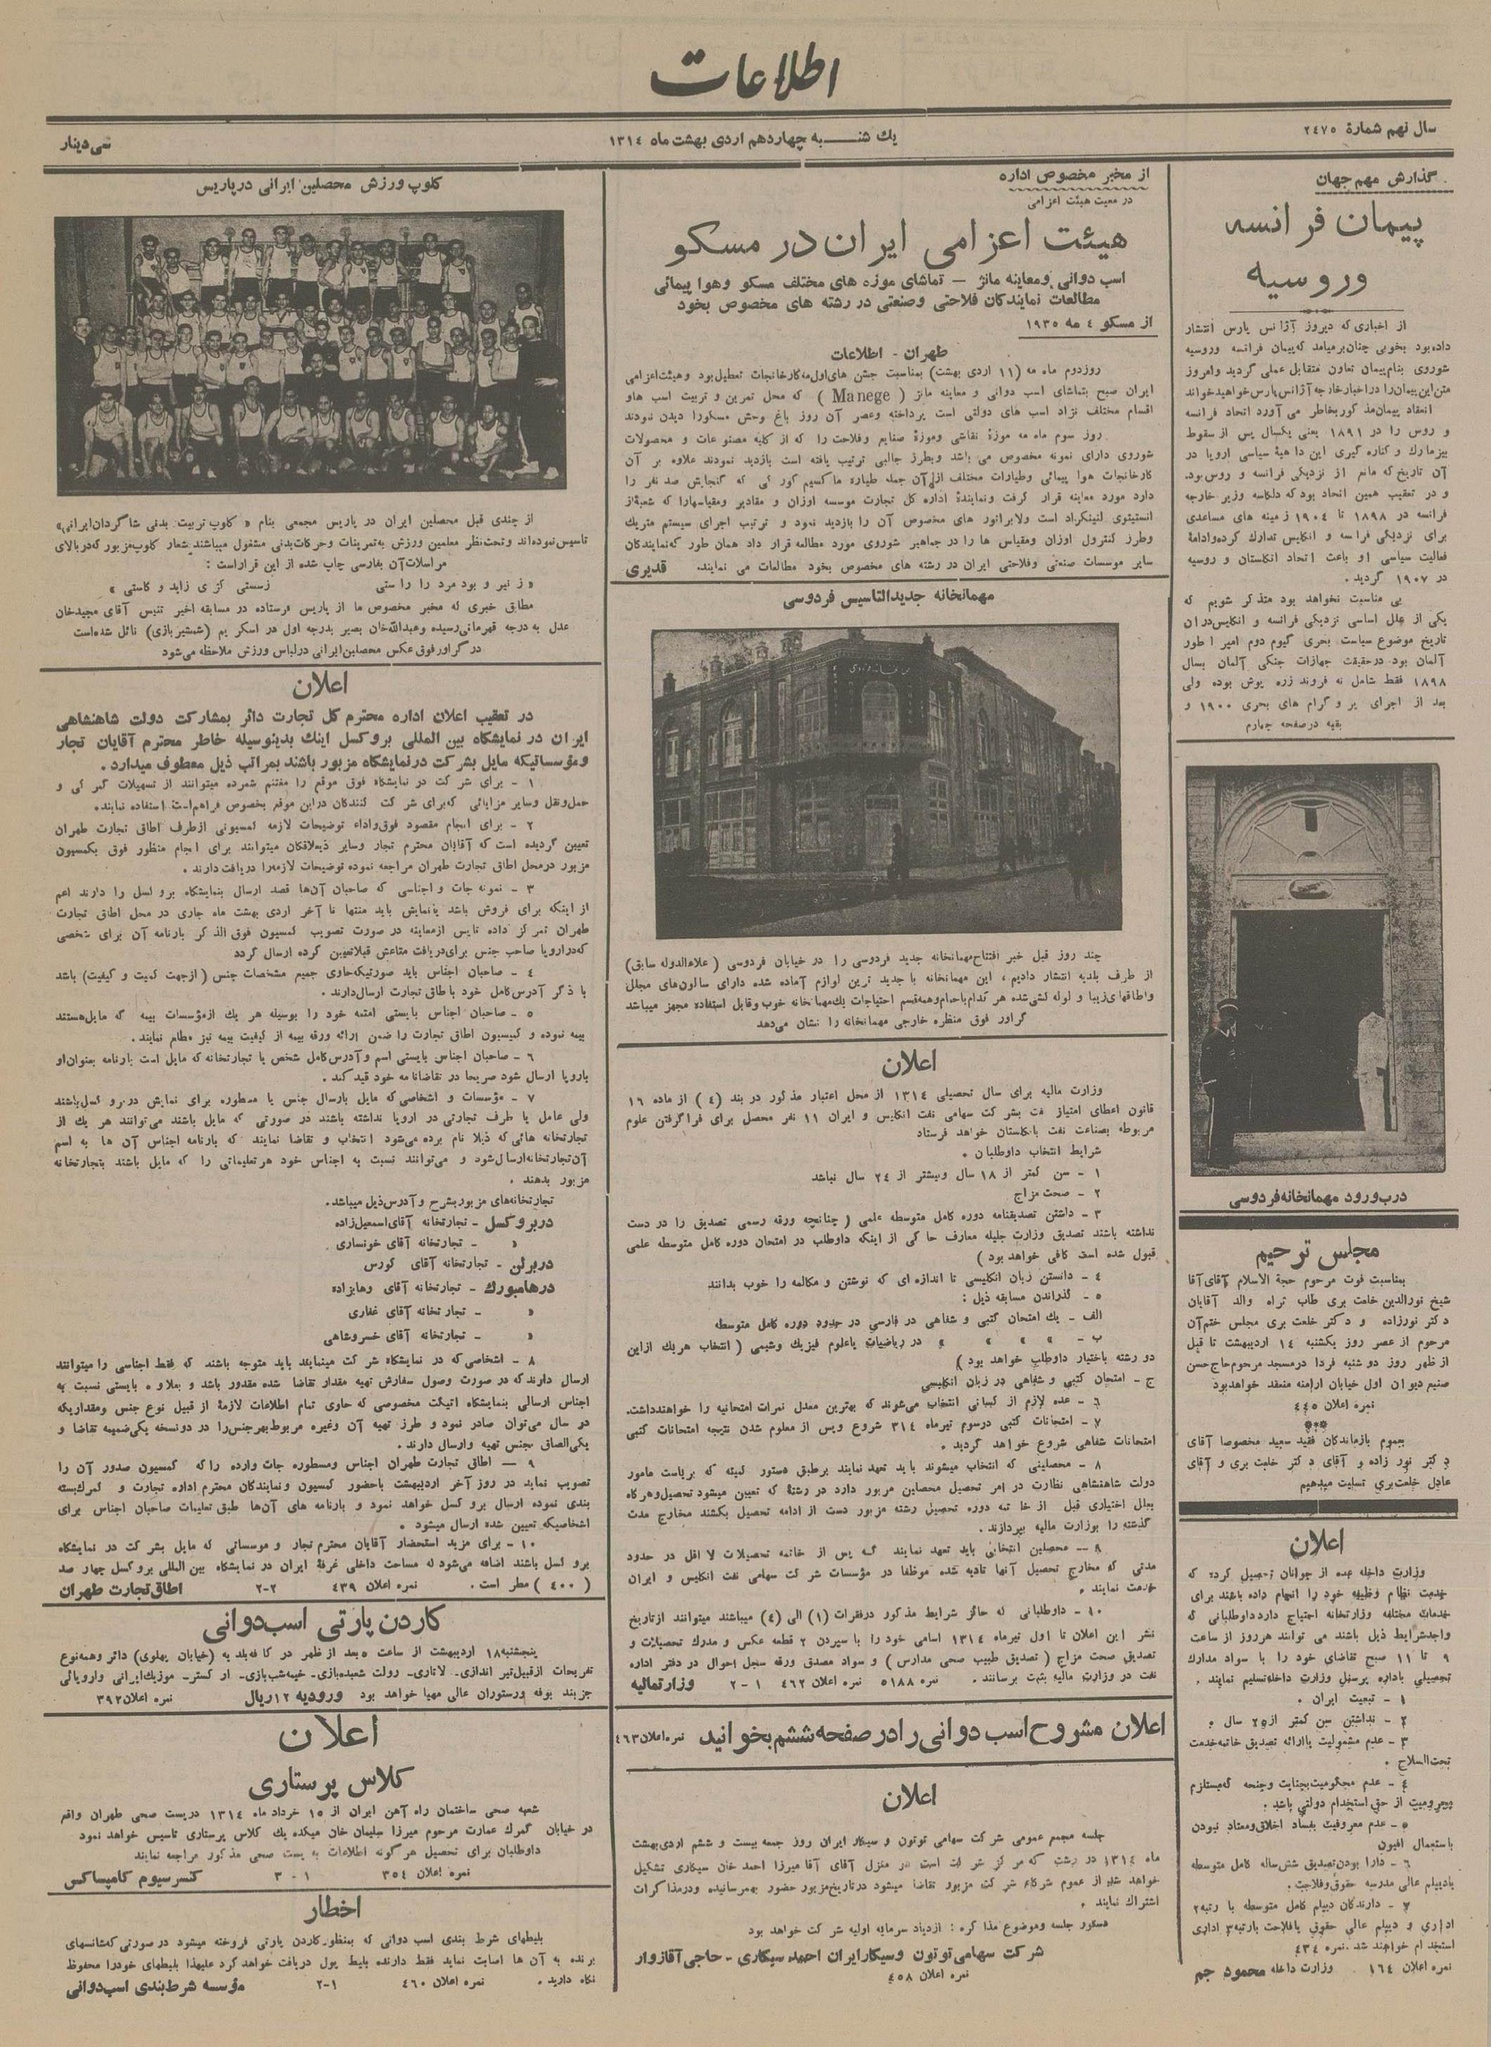 اطلاعات
سال نهم شمارهٔ ۲٤۷۵
یک شنبه چهاردهم اردی بهشت ماه ۱۳۱٤
سی دینار
گذارش مهم جهان
پیمان فرانسه
وروسیه
از اخباری که دیروز آژانس پارس انتشار
داده بود بخوبی چنان برمیامد که پیمان فرانسه وروسیه
شوروی بنام پیمان تعاون متقابل عملی گردید وامروز
متن این پیمان را در اخبار خارجه آژانس پارس خواهید خواند
انعقاد پیمان مذکور بخاطر می آورد اتحاد فرانسه
و روس را در ۱۸۹۱ یعنی یکسال پس از سقوط
بیزمارک و کناره گیری این داهیهٔ سیاسی اروپا در
آن تاریخ که مانع از نزدیکی فرانسه و روس بود.
و در تعقیب همین اتحاد بود که دلکاسه وزیر خارجه
فرانسه در ۱۸۹۸ تا ۱۹۰٤ زمینه های مساعدی
برای نزدیکی فرانسه و انگلیس تدارک کرده وادامهٔ
فعالیت سیاسی او باعث اتحاد انگلستان و روسیه
در ۱۹۰۷ گردید .
بی مناسبت نخواهد بود متذکر شویم که
یکی از علل اساسی نزدیکی فرانسه و انگلیس در آن
تاریخ موضوع سیاست بحری گیوم دوم امپراطور
آلمان بود در حقیقت جهازات جنگی آلمان بسال
۱۸۹۸ فقط شامل نه فروند زره پوش بوده ولی
بعد از اجرای پروگرام های بحری ۱۹۰۰ و
بقیه در صفحه چهارم
درب ورود مهمانخانه فردوسی
مجلس ترحیم
بمناسبت فوت مرحوم حجة الاسلام آقای آقا
شیخ نورالدین خلعت بری طاب ثراه والد آقایان
دکتر نورزاده و دکتر خلعت بری مجلس ختم آن
مرحوم از عصر روز یکشنبه ۱٤ اردیبهشت تا قبل
از ظهر روز دوشنبه فردا در مسجد مرحوم حاج حسن
صنیع دیوان اول خیابان ارامنه منعقد خواهد بود
نمره اعلان ٤٤۵
بعموم بازماندگان فقید سعید مخصوصا آقای
دکتر نورزاده و آقای دکتر خلعت بری و آقای
عادل خلعت بری تسلیت میدهیم
اعلان
وزارت داخله عده از جوانان تحصیل کرده که
خدمت نظام وظیفه خود را انجام داده باشند برای
خدمات مختلفه وزارتخانه احتیاج دارد داوطلبانی که
واجد شرایط ذیل باشند می توانند هرروز از ساعت
۹ تا ۱۱ صبح تقاضای خود را با سواد مدارک
تحصیلی باداره پرسنل وزارت داخله تسلیم نمایند .
۱ - تبعیت ایران .
۲ - نداشتن سن کمتر از ۲۵ سال .
۳ - عدم مشمولیت یا ارائه تصدیق خاتمه خدمت
تحت السلاح .
٤ - عدم محکومیت بجنایت وجنحه که مستلزم
محرومیت از حق استخدام دولتی باشد .
۵ - عدم معروفیت بفساد اخلاق ومعتاد نبودن
باستعمال افیون
٦ - دارا بودن تصدیق شش ساله کامل متوسطه
یا دیپلم عالی مدرسه حقوق وفلاحت .
۷ - دارندگان دیپلم کامل متوسطه با رتبه ۲
اداری و دیپلم عالی حقوق یا فلاحت با رتبه ۳ اداری
استخدام خواهند شد . نمره ٤۳٤
نمره اعلان ۱٦٤ وزارت داخله محمود جم
از مخبر مخصوص اداره
در معیت هیئت اعزامی
هیئت اعزامی ایران در مسکو
اسب دوانی ومعاینه مانژ — تماشای موزه های مختلف مسکو وهوا پیمائی
مطالعات نمایندگان فلاحتی وصنعتی در رشته های مخصوص بخود
از مسکو ٤ مه ۱۹۳۵
طهران - اطلاعات
روز دوم ماه مه (۱۱ اردی بهشت) بمناسبت جشن های اول مه کارخانجات تعطیل بود وهیئت اعزامی
ایران صبح بتماشای اسب دوانی و معاینه مانژ ( Manege ) که محل تمرین و تربیت اسب ها و
اقسام مختلف نژاد اسب های دولتی است پرداخته وعصر آن روز باغ وحش مسکو را دیدن نمودند
روز سوم ماه مه موزهٔ نقاشی وموزهٔ صنایع وفلاحت را که از کلیه مصنوعات و محصولات
شوروی دارای نمونه مخصوص می باشد وبطرز جالبی ترتیب یافته است بازدید نمودند علاوه بر آن
کارخانجات هوا پیمائی وطیارات مختلف از آن جمله طیاره ماکسیم گورکی که گنجایش صد نفر را
دارد مورد معاینه قرار گرفت ونماینده اداره کل تجارت موسسه اوزان و مقادیر ومقیاسها را که شعبهٔ از
انستیتوی لنینگراد است ولابراتور های مخصوص آن را بازدید نمود و ترتیب اجرای سیستم متریک
وطرز کنترول اوزان ومقیاس ها را در جماهیر شوروی مورد مطالعه قرار داد همان طور که نمایندگان
سایر موسسات صنعتی وفلاحتی ایران در رشته های مخصوص بخود مطالعات می نمایند . قدیری
مهمانخانه جدیدالتاسیس فردوسی
چند روز قبل خبر افتتاح مهمانخانه جدید فردوسی را در خیابان فردوسی (علاءالدوله سابق)
از طرف بلدیه انتشار دادیم ، این مهمانخانه با جدید ترین لوازم آماده شده دارای سالون های مجلل
واطاقهای زیبا و لوله کشی شده هر کدام باحمام وهمه قسم احتیاجات یک مهمانخانه خوب وقابل استفاده مجهز میباشد
گراور فوق منظره خارجی مهمانخانه را نشان می دهد
اعلان
وزارت مالیه برای سال تحصیلی ۱۳۱٤ از محل اعتبار مذکور در بند (٤) از ماده ۱٦
قانون اعطای امتیاز نفت بشرکت سهامی نفت انگلیس و ایران ۱۱ نفر محصل برای فراگرفتن علوم
مربوطه بصناعت نفت بانگلستان خواهد فرستاد
شرایط انتخاب داوطلبان .
۱ - سن کمتر از ۱۸ سال وبیشتر از ۲٤ سال نباشد
۲ - صحت مزاج
۳ - داشتن تصدیقنامه دوره کامل متوسطه علمی ( چنانچه ورقه رسمی تصدیق را در دست
نداشته باشند تصدیق وزارت جلیله معارف حاکی از اینکه داوطلب در امتحان دوره کامل متوسطه علمی
قبول شده است کافی خواهد بود )
٤ - دانستن زبان انگلیسی تا اندازه ای که نوشتن و مکالمه را خوب بدانند
۵ - گذراندن مسابقه ذیل :
الف - یک امتحان کتبی و شفاهی در فارسی در حدود دوره کامل متوسطه
ب - » » » » در ریاضیات یا علوم فیزیک وشیمی ( انتخاب هریک از این
دو رشته باختیار داوطلب خواهد بود )
ج - امتحان کتبی و شفاهی در زبان انگلیسی
٦ - عده لازم از کسانی انتخاب می شوند که بهترین معدل نمرات امتحانیه را خواهند داشت .
۷ - امتحانات کتبی در سوم تیرماه ۳۱٤ شروع وپس از معلوم شدن نتیجه امتحانات کتبی
امتحانات شفاهی شروع خواهد گردید .
۸ - محصلینی که انتخاب میشوند باید تعهد نمایند برطبق دستور کمیته که بریاست مامور
دولت شاهنشاهی نظارت در امر تحصیل محصلین مزبور دارد در رشتهٔ که تعیین میشود تحصیل وهرگاه
بعلل اختیاری قبل از خاتمه دوره تحصیل رشته مزبور دست از ادامه تحصیل بکشند مخارج مدت
گذشته را بوزارت مالیه بپردازند .
۹ — محصلین انتخابی باید تعهد نمایند که پس از خاتمه تحصیلات لااقل در حدود
مدتی که مخارج تحصیل آنها تادیه شده موظفا در مؤسسات شرکت سهامی نفت انگلیس و ایران
خدمت نمایند .
۱۰ - داوطلبانی که حائز شرایط مذکور در فقرات (۱) الی (٤) میباشند میتوانند از تاریخ
نشر این اعلان تا اول تیرماه ۱۳۱٤ اسامی خود را با سپردن ۲ قطعه عکس و مدرک تحصیلات و
تصدیق صحت مزاج ( تصدیق طبیب صحی مدارس ) و سواد مصدق ورقه سجل احوال در دفتر اداره
نفت در وزارت مالیه بثبت برسانند . نمره ۵۱۸۸ نمره اعلان ٤٦۲ ۱ - ۲ وزارت مالیه
اعلان مشروح اسب دوانی را در صفحه ششم بخوانید نمره اعلان ٤٦۳
اعلان
جلسه مجمع عمومی شرکت سهامی توتون و سیگار ایران روز جمعه بیست و ششم اردی بهشت
ماه ۱۳۱٤ در رشت که مرکز شرکت است در منزل آقای آقا میرزا احمد خان سیگاری تشکیل
خواهد شد از عموم شرکاء شرکت مزبور تقاضا میشود در تاریخ مزبور حضور بهمرسانیده ودر مذاکرات
اشتراک نمایند .
دستور جلسه وموضوع مذاکره : ازدیاد سرمایه اولیه شرکت خواهد بود
شرکت سهامی توتون وسیگار ایران احمد سیگاری - حاجی آقا زوار
نمره اعلان ٤۵۸
کلوپ ورزش محصلین ایرانی در پاریس
از چندی قبل محصلین ایران در پاریس مجمعی بنام « کلوپ تربیت بدنی شاگردان ایرانی»
تاسیس نموده اند وتحت نظر معلمین ورزش به تمرینات وحرکات بدنی مشغول میباشند شعار کلوپ مزبور که در بالای
مراسلات آن بفارسی چاپ شده از این قرار است :
« ز نیرو بود مرد را راستی ز سستی کژی زاید و کاستی »
مطابق خبری که مخبر مخصوص ما از پاریس فرستاده در مسابقه اخیر تنیس آقای مجید خان
عدل به درجه قهرمانی رسیده وعبدالله خان بصیر بدرجه اول در اسکریم (شمشیر بازی) نائل شده است
در گراور فوق عکس محصلین ایرانی در لباس ورزش ملاحظه می شود
اعلان
در تعقیب اعلان اداره محترم کل تجارت دائر بمشارکت دولت شاهنشاهی
ایران در نمایشگاه بین المللی بروکسل اینک بدینوسیله خاطر محترم آقایان تجار
ومؤسساتیکه مایل بشرکت در نمایشگاه مزبور باشند بمراتب ذیل معطوف میدارد .
۱ - برای شرکت در نمایشگاه فوق موقع را مغتنم شمرده میتوانند از تسهیلات گمرکی و
حمل ونقل وسایر مزایائی که برای شرکت کنندگان در این موقع بخصوص فراهم است استفاده نمایند .
۲ - برای انجام مقصود فوق واداء توضیحات لازمه کمیسیونی از طرف اطاق تجارت طهران
تعیین گردیده است که آقایان محترم تجار وسایر ذیعلاقگان میتوانند برای انجام منظور فوق بکمسیون
مزبور در محل اطاق تجارت طهران مراجعه نموده توضیحات لازمه را دریافت دارند .
۳ - نمونه جات و اجناسی که صاحبان آن ها قصد ارسال بنمایشگاه بروکسل را دارند اعم
از اینکه برای فروش باشد یا نمایش باید منتها تا آخر اردی بهشت ماه جاری در محل اطاق تجارت
طهران تمرکز داده تا پس از معاینه در صورت تصویب کمسیون فوق الذکر بارنامه آن برای شخصی
که در اروپا صاحب جنس برای دریافت متاعش قبلا تعیین کرده ارسال گردد
٤ - صاحبان اجناس باید صورتیکه حاوی جمیع مشخصات جنس (از جهت کمیت و کیفیت) باشد
با ذکر آدرس کامل خود باطاق تجارت ارسال دارند .
۵ - صاحبان اجناس بایستی امتعه خود را بوسیله هر یک از مؤسسات بیمه که مایل هستند
بیمه نموده و کمیسیون اطاق تجارت را ضمن ارائه ورقه بیمه از کیفیت بیمه نیز مطلع نمایند .
٦ - صاحبان اجناس بایستی اسم وآدرس کامل شخص یا تجارتخانه که مایل است بارنامه بعنوان او
باروپا ارسال شود صریحا در تقاضانامه خود قید کند .
۷ - مؤسسات و اشخاصی که مایل بارسال جنس یا مسطوره برای نمایش در بروکسل باشند
ولی عامل یا طرف تجارتی در اروپا نداشته باشند در صورتی که مایل باشند می توانند هر یک از
تجارتخانه هائی که ذیلا نام برده می شود انتخاب و تقاضا نمایند که بارنامه اجناس آن ها به اسم
آن تجارتخانه ارسال شود و می توانند نسبت به اجناس خود هر تعلیماتی را که مایل باشند بتجارتخانه
مزبور بدهند .
تجارتخانه های مزبور بشرح و آدرس ذیل میباشد .
در بروکسل - تجارتخانه آقای اسمعیل زاده
« - تجارتخانه آقای خونساری
در برلن - تجارتخانه آقای کورس
در هامبورک - تجارتخانه آقای وهابزاده
« - تجارتخانه آقای غفاری
« - تجارتخانه آقای خسروشاهی
۸ - اشخاصی که در نمایشگاه شرکت مینمایند باید متوجه باشند که فقط اجناسی را میتوانند
ارسال دارند که در صورت وصول سفارش تهیه مقدار تقاضا شده مقدور باشد و بعلاوه بایستی نسبت به
اجناس ارسالی بنمایشگاه اتیکت مخصوصی که حاوی تمام اطلاعات لازمهٔ از قبیل نوع جنس ومقداریکه
در سال می توان صادر نمود و طرز تهیه آن وغیره مربوط بهر جنس را در دو نسخه یکی ضمیمه تقاضا و
یکی الصاق بجنس تهیه وارسال دارند .
۹ — اطاق تجارت طهران اجناس ومسطوره جات وارده را که کمسیون صدور آن را
تصویب نماید در روز آخر اردیبهشت باحضور کمسیون و نمایندگان محترم اداره تجارت و گمرک بسته
بندی نموده ارسال بروکسل خواهد نمود و بارنامه های آن ها طبق تعلیمات صاحبان اجناس برای
اشخاصیکه تعیین شده ارسال میشود .
۱۰ - برای مزید استحضار آقایان محترم تجار و موسساتی که مایل بشرکت در نمایشگاه
بروکسل باشند اضافه می شود که مساحت داخلی غرفهٔ ایران در نمایشگاه بین المللی بروکسل چهار صد
( ٤۰۰ ) مطر است . نمره اعلان ٤۳۹ ۲-۲ اطاق تجارت طهران
کاردن پارتی اسب دوانی
پنجشنبه ۱۸ اردیبهشت از ساعت ۵ بعد از ظهر در کافه بلدیه (خیابان پهلوی) دائر وهمه نوع
تفریحات از قبیل تیر اندازی - لاتاری - رولت شعبده بازی - خیمه شب بازی - ارکستر - موزیک ایرانی واروپائی
جزبند بوفه ورستوران عالی مهیا خواهد بود ورودیه ۱۲ ریال نمره اعلان ۳۹۲
اعلان
کلاس پرستاری
شعبه صحی ساختمان راه آهن ایران از ۱۵ خرداد ماه ۱۳۱٤ در پست صحی طهران واقع
در خیابان گمرک عمارت مرحوم میرزا سلیمان خان میکده یک کلاس پرستاری تاسیس خواهد نمود
داوطلبان برای تحصیل هر گونه اطلاعات به پست صحی مذکور مراجعه نمایند
نمره اعلان ۳۵٤ ۱ - ۳ کنسرسیوم کامپساکس
اخطار
بلیطهای شرط بندی اسب دوانی که بمنظور کاردن پارتی فروخته میشود در صورتی که شانسهای
برنده به آن ها اصابت نماید فقط دارنده بلیط پول دریافت خواهد کرد علیهذا بلیطهای خود را محفوظ
نگاه دارید . نمره اعلان ٤٦۰ ۱-۲ مؤسسه شرط بندی اسب دوانی